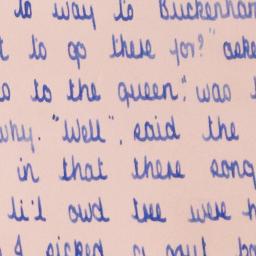 to way to Buckenham
t to go there for?" aske
o to the queen", was
why. "Well", said the
in that there song
li'l owd tree were h
I picked a